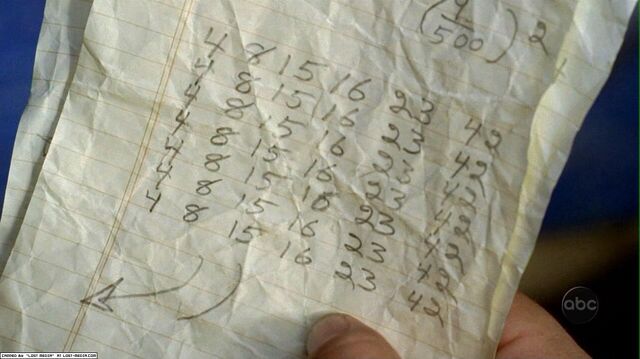 9
500
2
4 8 15 16 23 42
4 8 15 16 23 42
4 8 15 16 23 42
4 8 15 16 23 42
4 8 15 16 23 42
4 8 15 16 23 42
4 8 15 16 23 42
abc
CAPPED BY "LOST MEDIA" AT LOST-MEDIA.COM